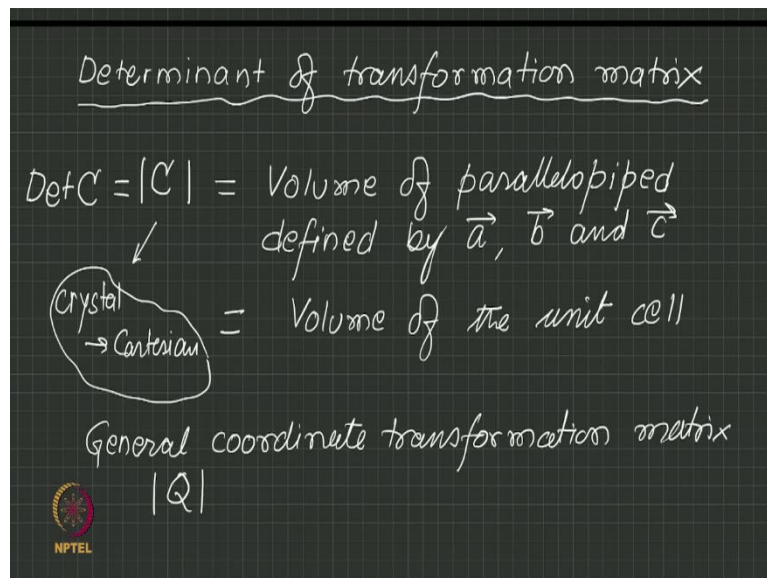 Determinant of transformation matrix
Det C = |C| = Volume of parallelopiped
defined by a⃗, b⃗ and c⃗
Crystal
→ Cartesian
= Volume of the unit cell
General coordinate transformation matrix
|Q|
NPTEL